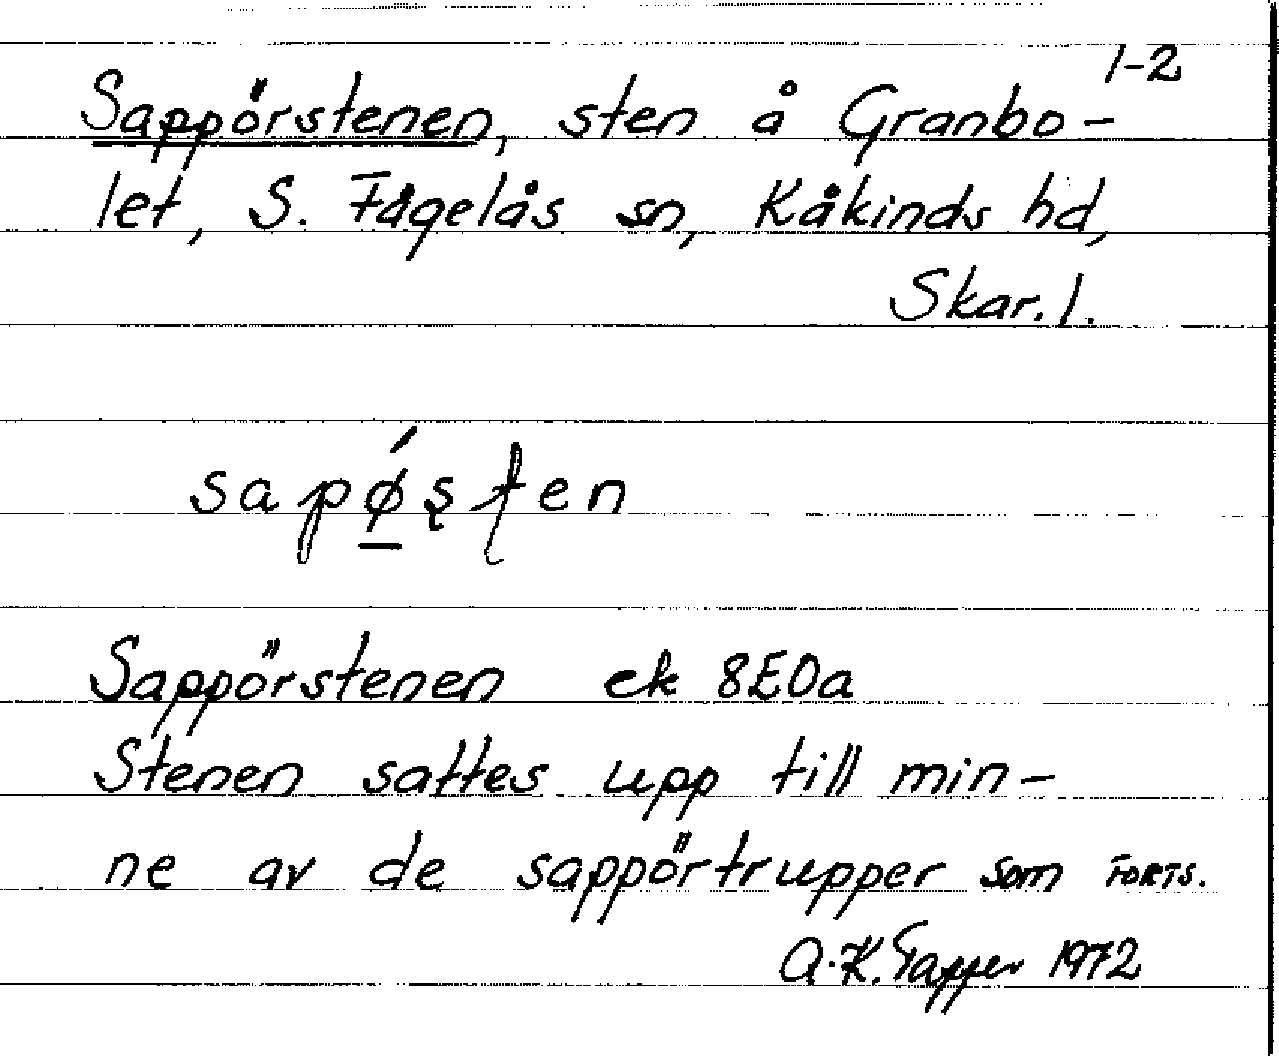 1-2
Sappörstenen, sten å Granbo-
let, S. Fågelås sn, Kåkinds hd,
Skar. l.
sapǿ̲ʂten
Sappörstenen ek 8E0a
Stenen sattes upp till min-
ne av de sappörtrupper som FORTS.
A.K. Tapper 1972